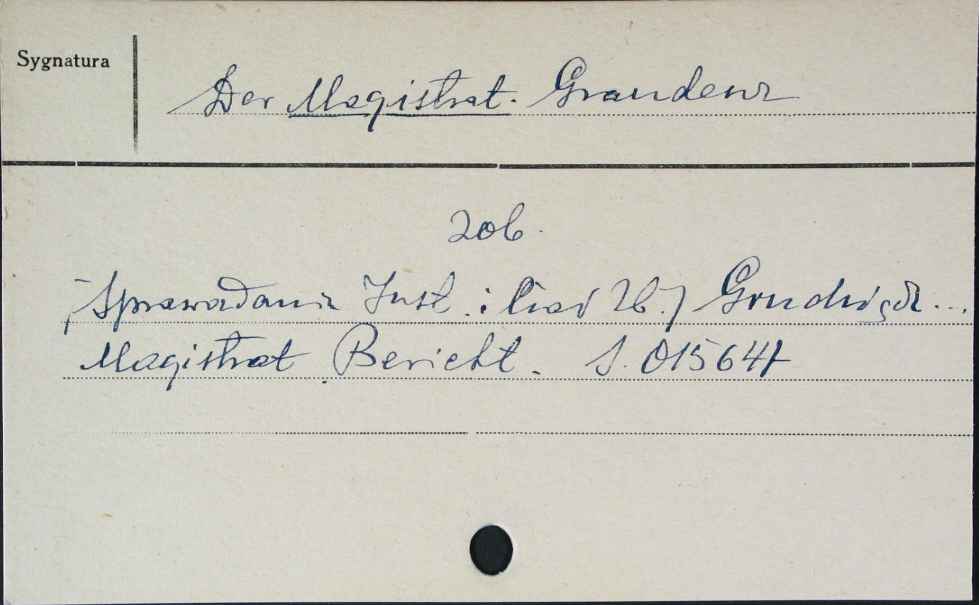 Sygnatura
Der Magistrat. Graudenz
zob.
/Sprawozdania Inst. i Grudziądz...
Magistrat Bericht. S. 01564